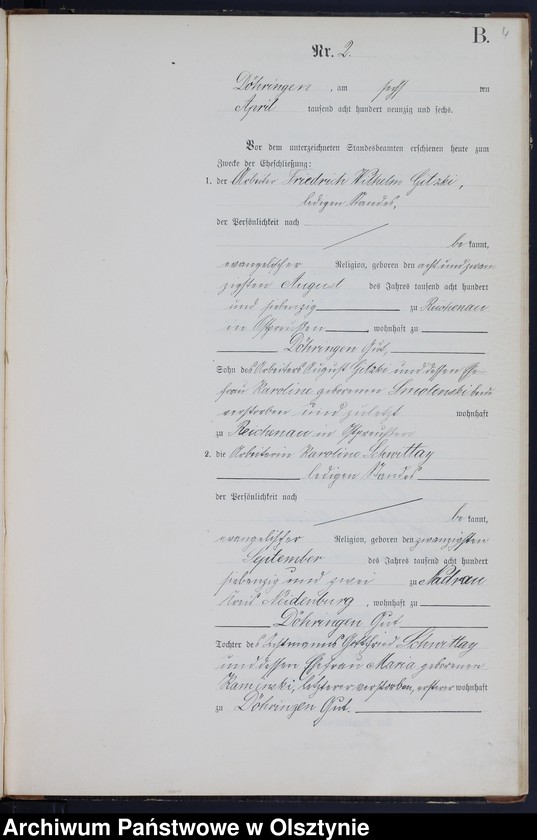 B. 4
Nr. 2.
Döhringen, am sechs ten
April tausend acht hundert neunzig und sechs.
Vor dem unterzeichneten Standesbeamten erschienen heute zum
Zwecke der Eheschließung:
1. der Arbeiter Friedrich Wilhelm Gitzki,
ledigen Standes,
der Persönlichkeit nach
be kannt,
evangelischer Religion, geboren den acht und zwan
zigsten August des Jahres tausend acht hundert
und siebenzig zu Reichenau
in Ostpreußen, wohnhaft zu
Döhringen Gut,
Sohn des Arbeiters August Gitzki und dessen Ehe-
frau Karoline geborenen Smolenski beide
verstorben und zuletzt wohnhaft
zu Reichenau in Ostpreußen
2. die Arbeiterin Karoline Schwittay
ledigen Standes
der Persönlichkeit nach
be kannt,
evangelischer Religion, geboren den zwanzigsten
September des Jahres tausend acht hundert
siebenzig und zwei zu Nadrau
Kreis Neidenburg, wohnhaft zu
Döhringen Gut
Tochter des Gottfried Schwittay
und dessen Ehefrau Maria geborenen
Kamiewki, letztere verstorben, ersterer wohnhaft
zu Döhringen Gut.
Archiwum Państwowe w Olsztynie